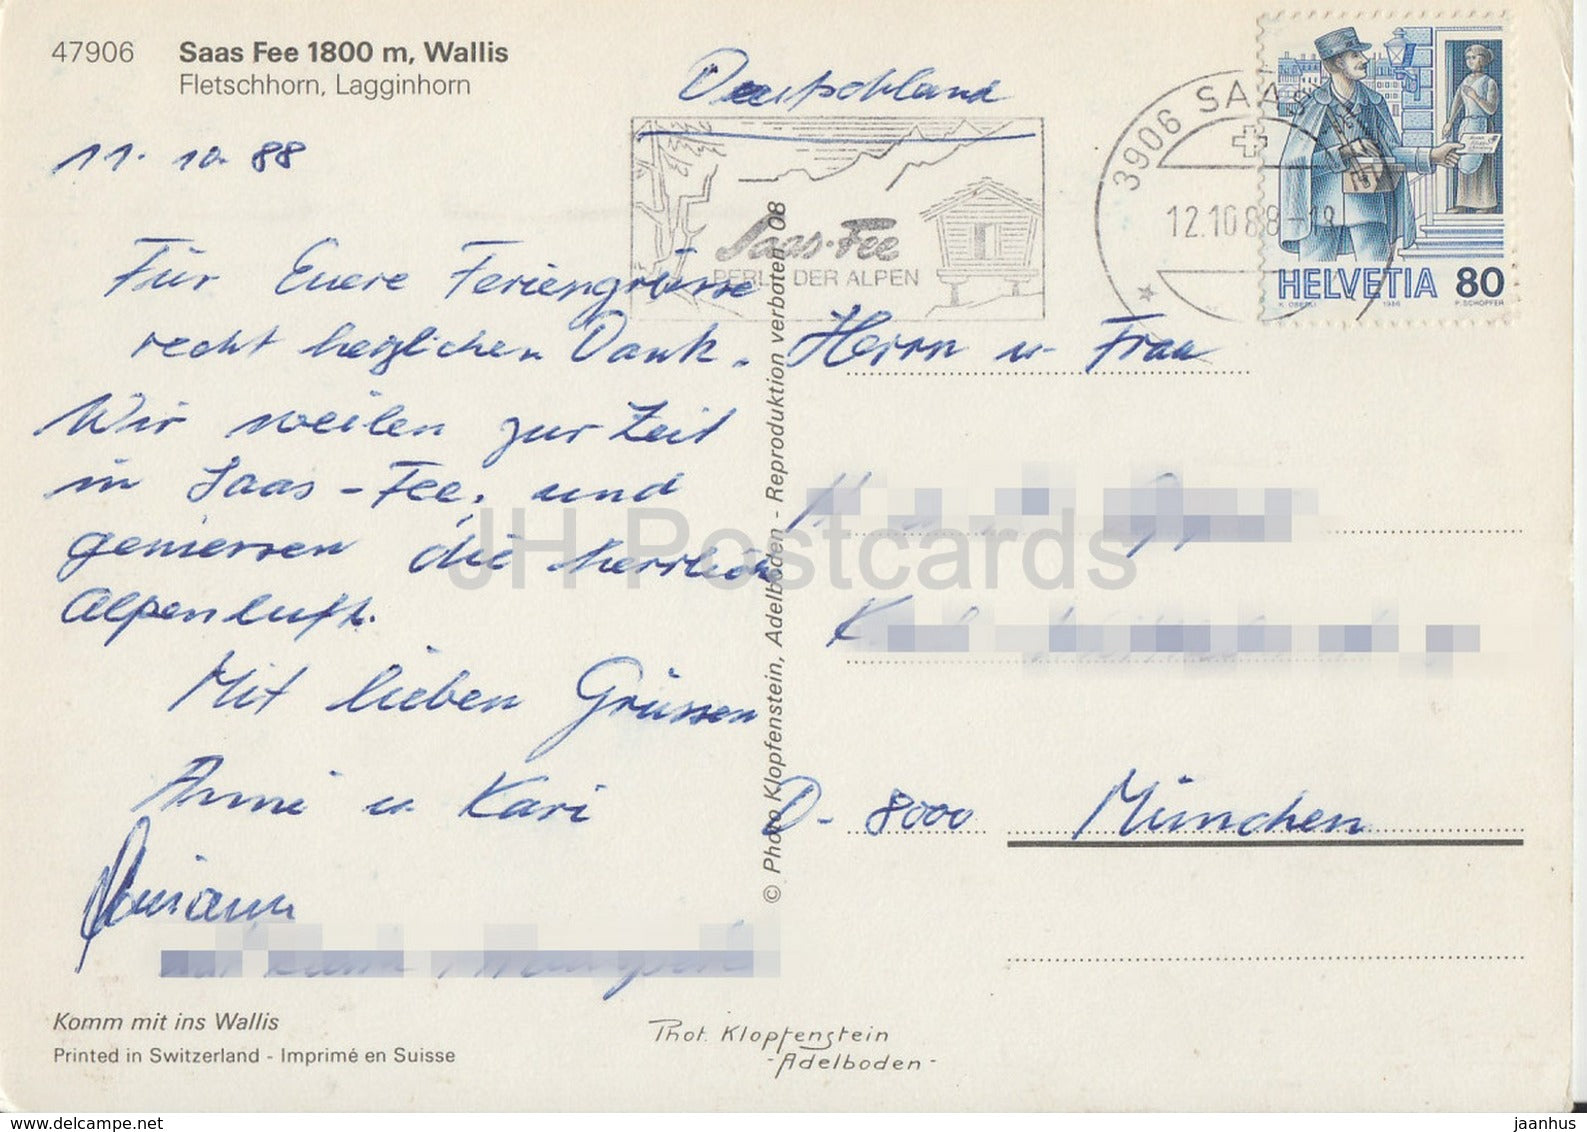 47906 Saas Fee 1800 m, Wallis
Fletschhorn, Lagginhorn
11. 10. 88
Deutschland
Für Euere Feriengrüsse
recht herzlichen Dank.
Wir weilen zur Zeit
in Saas-Fee, und
geniessen die herrliche
Alpenluft.
Mit lieben Grüssen
Anni u Kari
Saas-Fee
PERLE DER ALPEN
3906 SAAS
12.10.88-18
HELVETIA 80
K. OBERLI 1986 P. SCHOPFER
Herrn u. Frau
D- 8000 München
© Photo Klopfenstein, Adelboden - Reproduktion verboten 08
Komm mit ins Wallis
Printed in Switzerland - Imprimé en Suisse
Phot. Klopfenstein
- Adelboden -
JH Postcards
www.hippostcard.com
jaanhus